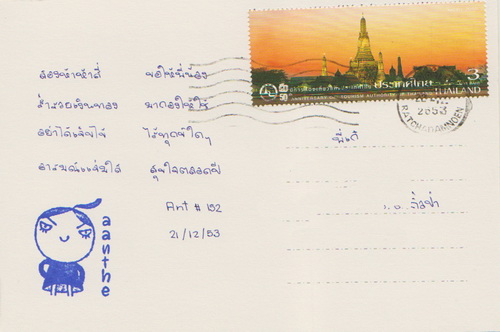 สองห้าห้าสี่ ขอให้พี่น้อง
ร่ำรวยเงินทอง มากองให้ใช้
อย่าได้เจ็บไข้ ไร้ทุกข์ใดๆ
อารมณ์แจ่มใส สุขใจตลอดปี
Ant # 192
21/12/53
aanthe
ประเทศไทย 3
THAILAND
2553
RATCHADAMNOEN
พี่เก๋